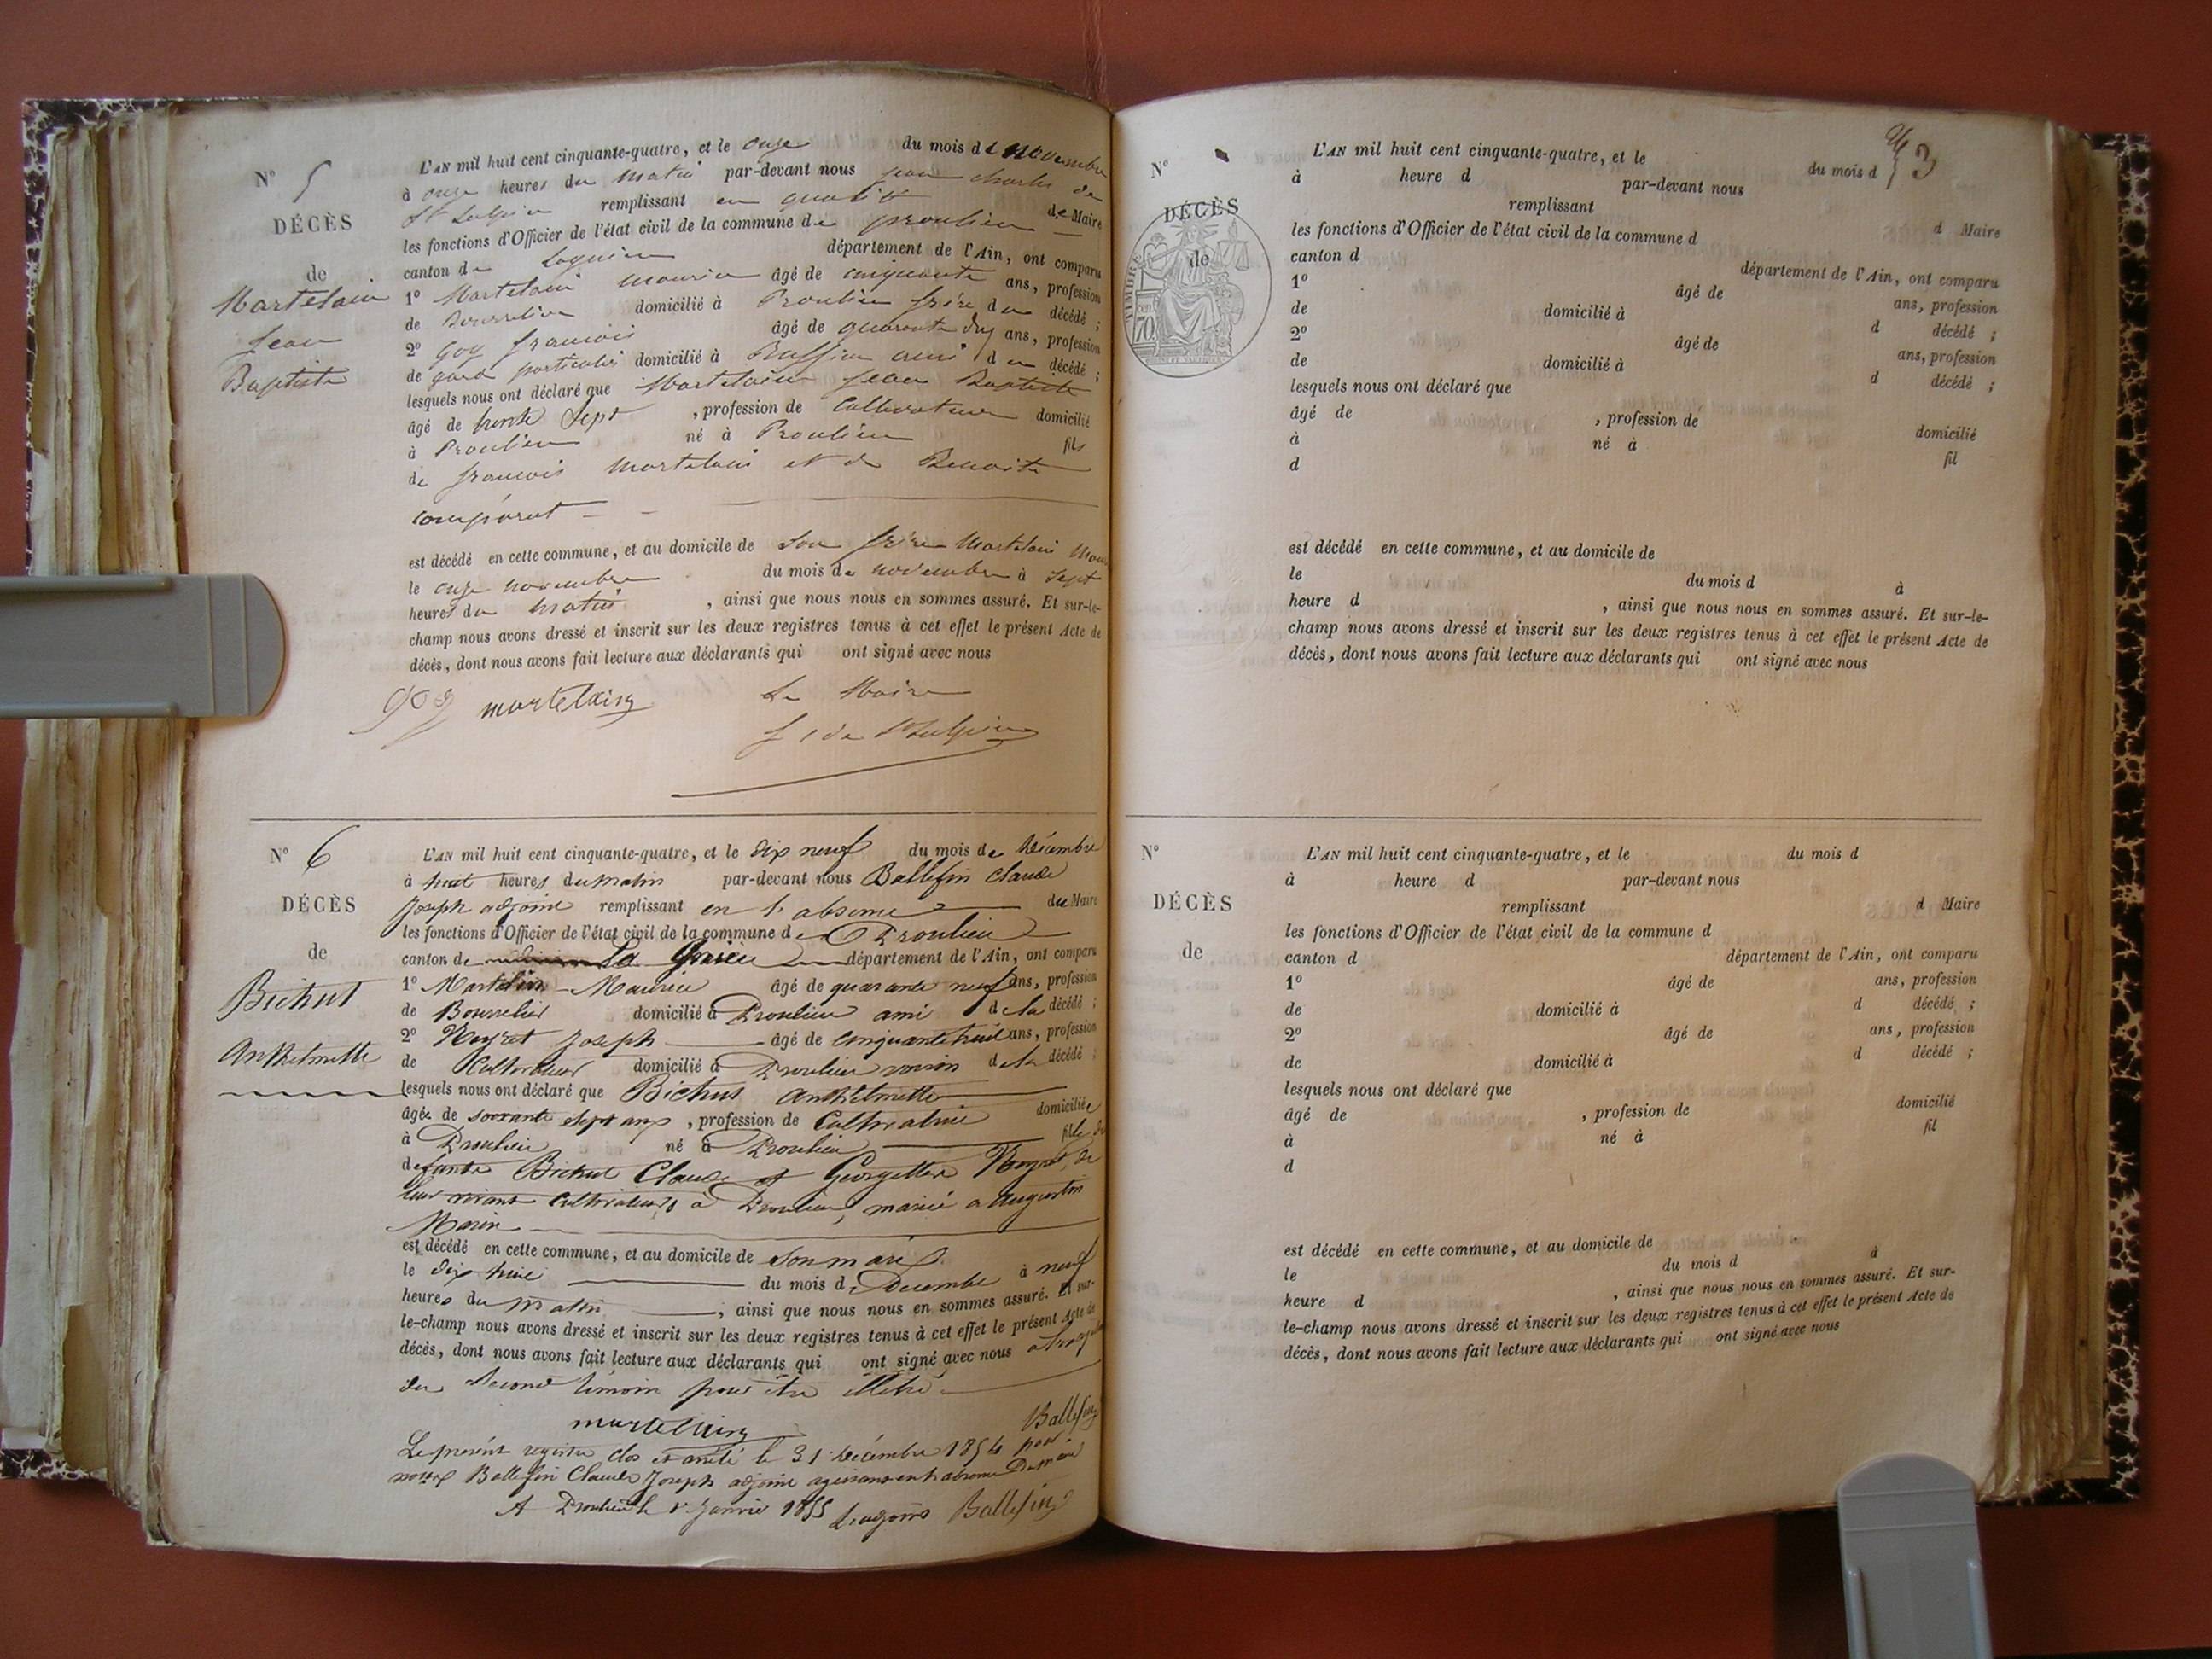 N° 5
DÉCÈS
de
Martelain
Jean
Baptiste
L'AN mil huit cent cinquante-quatre, et le onze du mois de novembre
à onze heures du matin par-devant nous jean charles de
St Sulpice remplissant en qualité de Maire
les fonctions d'Officier de l'état civil de la commune de proulieu
canton de Lagnieu département de l'Ain, ont comparu
1° Martelain maurice âgé de cinquante ans, profession
de Bourrelier domicilié à Proulieu frère du décédé ;
2° goy francois âgé de quarante ans, profession
de garde particulier domicilié à Ruffieu ami du décédé ;
lesquels nous ont déclaré que Martelain Jean Baptiste
âgé de trente Sept , profession de Cultivateur domicilié
à Proulieu né à Proulieu fils
de francois Martelain et de Benoite
comparat
est décédé en cette commune, et au domicile de Son frère Martelain
le onze novembre du mois de novembre à Sept
heures du Matin , ainsi que nous nous en sommes assuré. Et sur-le-
champ nous avons dressé et inscrit sur les deux registres tenus à cet effet le présent Acte de
décès, dont nous avons fait lecture aux déclarants qui ont signé avec nous
goy martelain Le Maire
J C de St Sulpice
N° 6
DÉCÈS
de
Bichut
Anthelmette
L'AN mil huit cent cinquante-quatre, et le dix neuf du mois de Décembre
à huit heures du matin par-devant nous Ballefin Claude
Joseph adjoint remplissant en l'absence du Maire
les fonctions d'Officier de l'état civil de la commune de Proulieu
canton de département de l'Ain, ont comparu
1° Martelain Maurice âgé de quarante neuf ans, profession
de Bourrelier domicilié à Proulieu ami de la décédé ;
2° Neyret Joseph âgé de cinquante huit ans, profession
de Cultivateur domicilié à Proulieu voisin de la décédé ;
lesquels nous ont déclaré que Bichut Anthelmette
âgée de soixante sept ans , profession de Cultivatrice domiciliée
à Proulieu né à Proulieu fille de
defunts Bichut Claude et Georgette Neyret, de
leur vivant cultivateurs à Proulieu, mariée a Augustin
Marin
est décédé en cette commune, et au domicile de son mari
le dix huit du mois de Decembre à neuf
heures du matin , ainsi que nous nous en sommes assuré. Et sur-
le-champ nous avons dressé et inscrit sur les deux registres tenus à cet effet le présent Acte de
décès, dont nous avons fait lecture aux déclarants qui ont signé avec nous
du second témoin pour être illétré
martelain Ballefin
Le présent registre clos et arrêté le 31 Décembre 1854 par
nous Ballefin Claude Joseph adjoint agissant en l'absence Du maire
A Proulieu le 1er Janvier 1855 L'adjoint Ballefin
3
N°
DÉCÈS
de
TIMBRE
70
L'AN mil huit cent cinquante-quatre, et le du mois d
à heure d par-devant nous
remplissant d Maire
les fonctions d'Officier de l'état civil de la commune d
canton d département de l'Ain, ont comparu
1° âgé de ans, profession
de domicilié à d décédé ;
2° âgé de ans, profession
de domicilié à d décédé ;
lesquels nous ont déclaré que
âgé de , profession de domicilié
à né à fil
d
est décédé en cette commune, et au domicile de
le du mois d à
heure d , ainsi que nous nous en sommes assuré. Et sur-le-
champ nous avons dressé et inscrit sur les deux registres tenus à cet effet le présent Acte de
décès, dont nous avons fait lecture aux déclarants qui ont signé avec nous
N°
DÉCÈS
de
L'AN mil huit cent cinquante-quatre, et le du mois d
à heure d par-devant nous
remplissant d Maire
les fonctions d'Officier de l'état civil de la commune d
canton d département de l'Ain, ont comparu
1° âgé de ans, profession
de domicilié à d décédé ;
2° âgé de ans, profession
de domicilié à d décédé ;
lesquels nous ont déclaré que
âgé de , profession de domicilié
à né à fil
d
est décédé en cette commune, et au domicile de
le du mois d à
heure d , ainsi que nous nous en sommes assuré. Et sur-
le-champ nous avons dressé et inscrit sur les deux registres tenus à cet effet le présent Acte de
décès, dont nous avons fait lecture aux déclarants qui ont signé avec nous